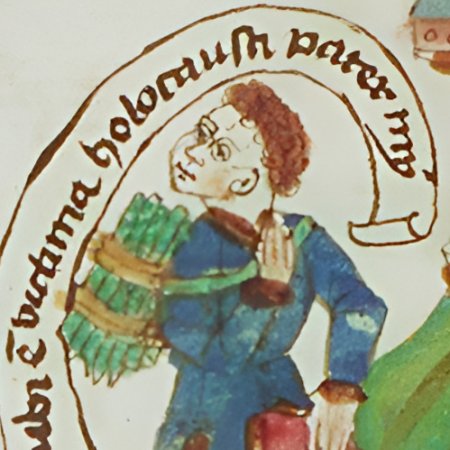 ubi ē victima holocausti pater mi